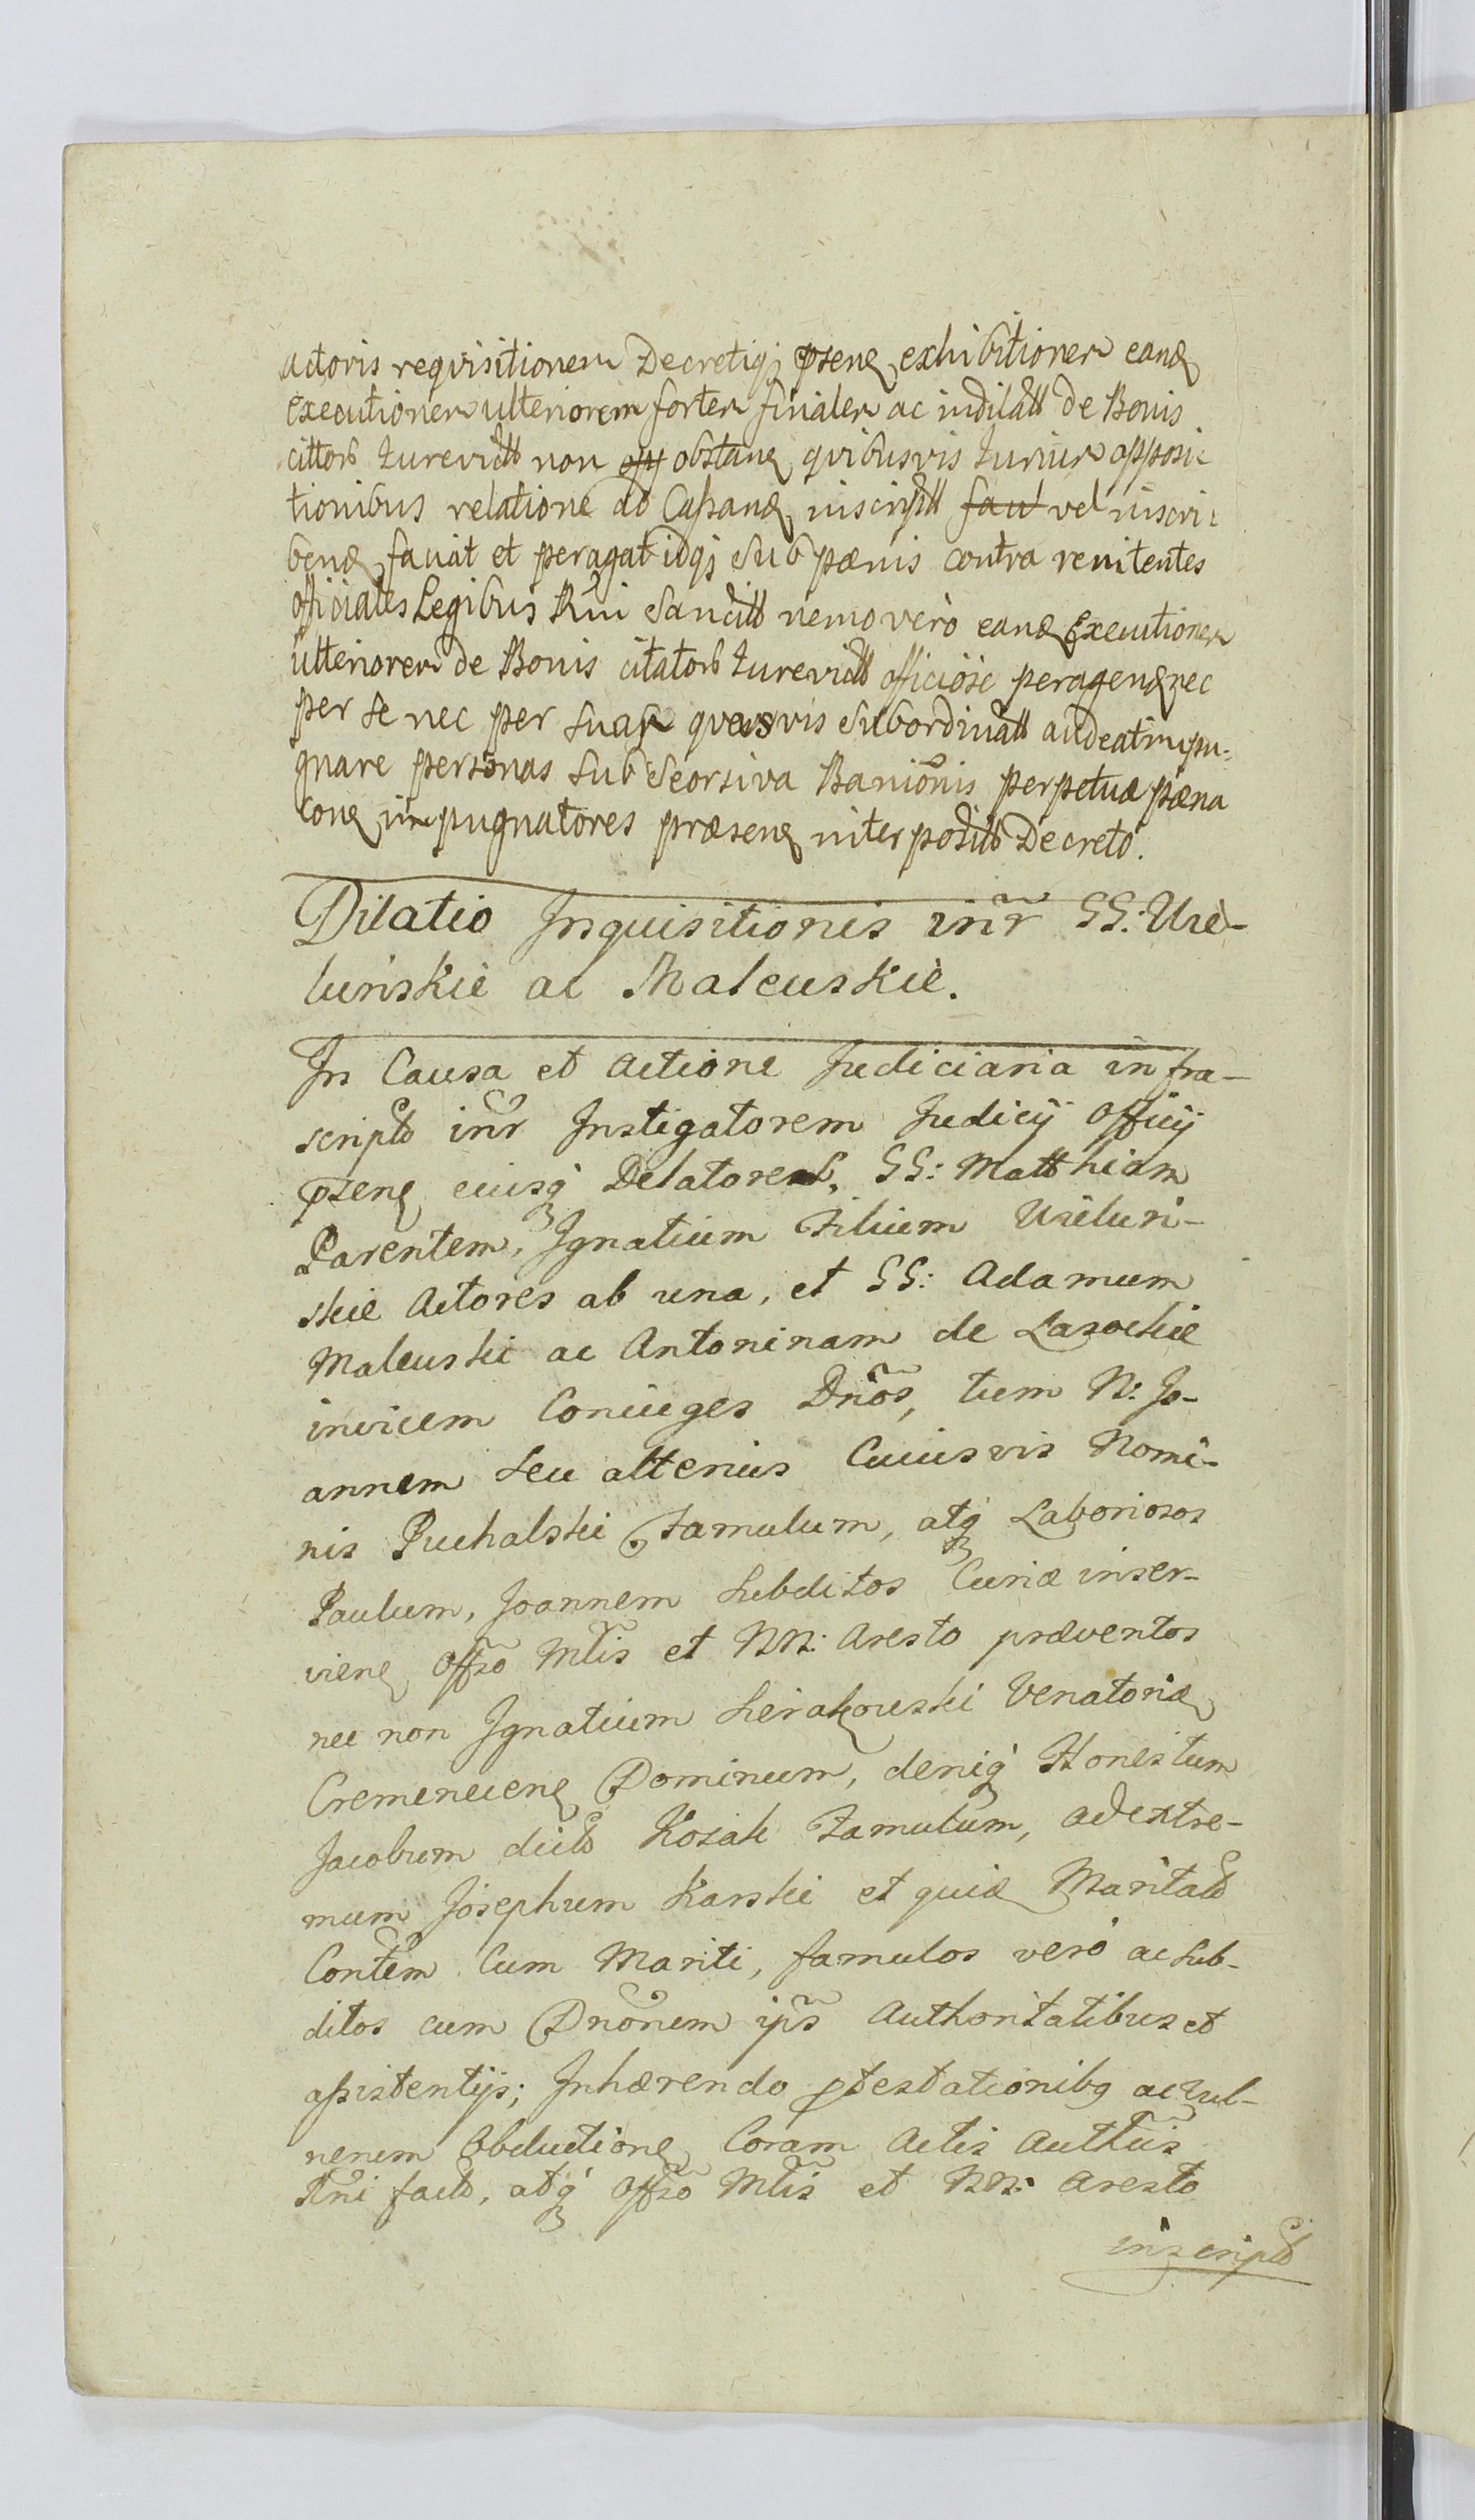 actoris requisitionem Decretiq; psens exhibitionem eand
Executionem ulteriorem fortem finalem ac indilatt de Bonis
cittorb Jurevictb non opp obstand quibusvis Jurium opposi-
tionibus relatione ad Cassand inscriptt fau vel inscri-
bend faciat et peragat idq; sub pænis contra renitentes
officiales Legibus Rni Sancitb nemo verò eand Executionem
ulteriorem de Bonis citatorb Jurevictb officiose peragend nec
per se nec per suas quasvis subordinatt audeat impu-
gnare personas sub Seorsiva Banionis perpetuæ pæna
cont impugnatores præsens interposito Decreto.
Dilatio Inquisitionis inr GG: Uie-
luńskie ac Maleuskie.
In Causa et Actione Judiciaria infra-
scripta inr Instigatorem Judicij Officij
psens eiusq Delatores, GG: Matthiam
Parentem, Ignatium Filium Uieluń-
skie Actores ab una, et GG: Adamum
Maleuski ac Antoninam de Lasockie
invicem Coniuges Dnos, tum N: Jo-
annem seu alterius Cuiusvis Nomi-
nis Puchalski Famulum, atq Laboriosos
Paulum, Joannem Subditos Curiæ inser-
viens Offso Mtis et NN: Aresto præventos
nec non Ignatium Sierakouski Venatorid
Cremeneciens Dominum, deniq Honestum
Jacobum dictb Kozak Famulum, ad extre-
mum Josephum Karski et quid Maritatb
Contem Cum Mariti, famulos verò ac sub-
ditos cum Dnonem ips Authoritatibus et
assistentijs; Inhærendo ptestationibq ac vul-
nerum Obductione Coram Actis Authcis
Rni factb, atq Offso Mtis et NN: Aresto
inscriptb